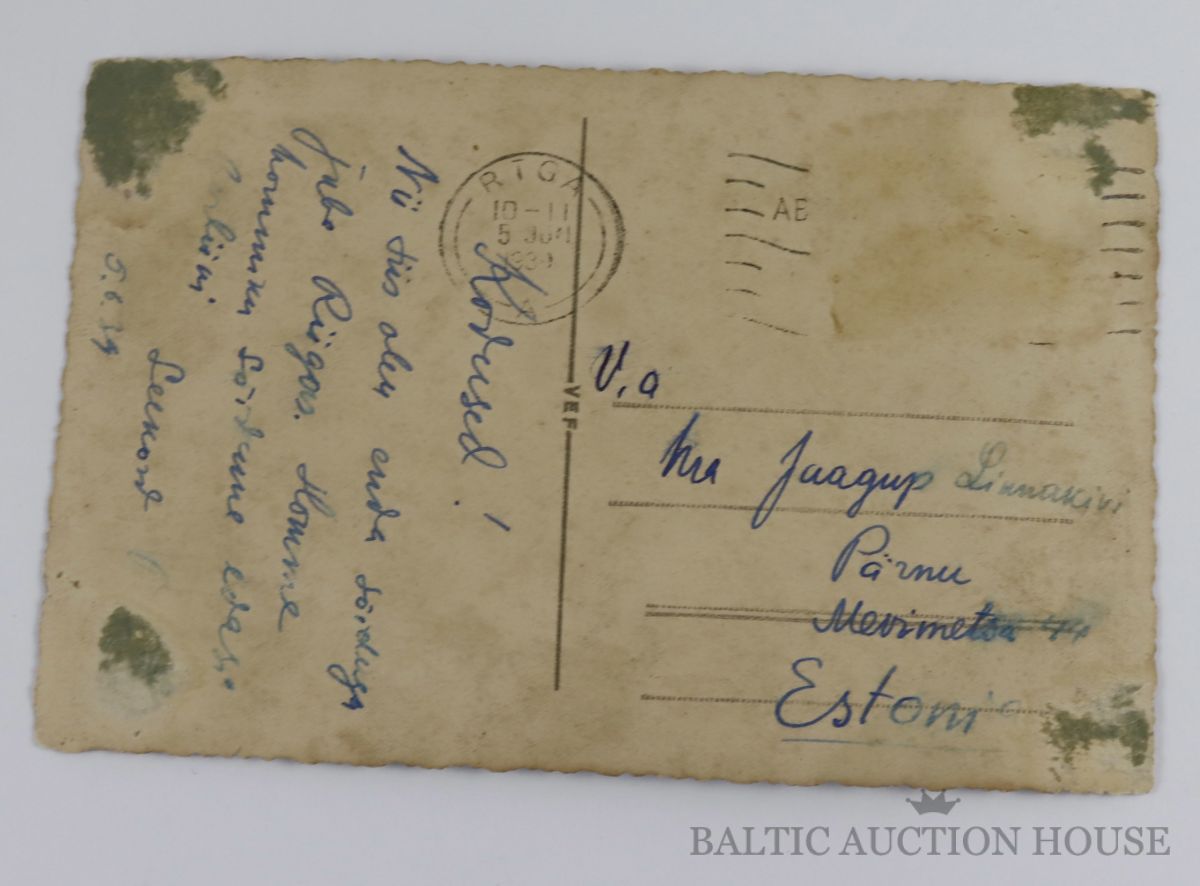 Kodused!
Nii siis olen enda sõiduga
juba Riigas. Homme
hommiku sõidame edasi
5.6.39
RIGA
10-11
5 JUN
1939
AB
VEF
V. a
Hra Jaagup Linnakivi
Pärnu
Merimetsa 44
Estonia
BALTIC AUCTION HOUSE